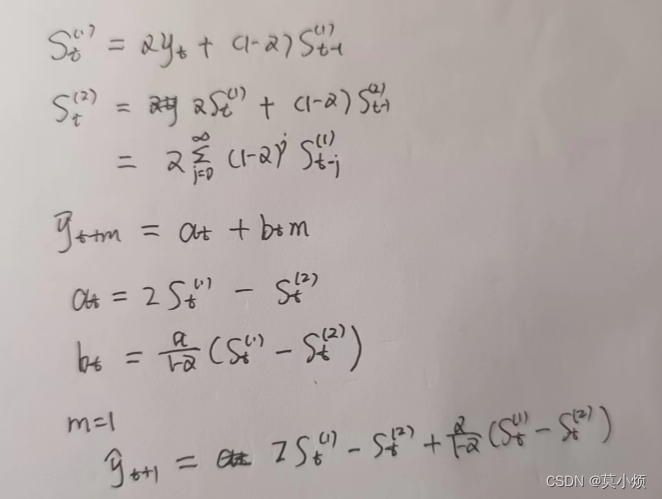 S_t^{(1)} = αy_t + (1-α)S_{t-1}^{(1)}
S_t^{(2)} = αS_t^{(1)} + (1-α)S_{t-1}^{(2)}
= α∑_{j=0}^{∞} (1-α)^j S_{t-j}^{(1)}
ȳ_{t+m} = a_t + b_t m
a_t = 2S_t^{(1)} - S_t^{(2)}
b_t = \frac{α}{1-α}(S_t^{(1)} - S_t^{(2)})
m=1
ŷ_{t+1} = 2S_t^{(1)} - S_t^{(2)} + \frac{α}{1-α}(S_t^{(1)} - S_t^{(2)})
CSDN @莫小烦